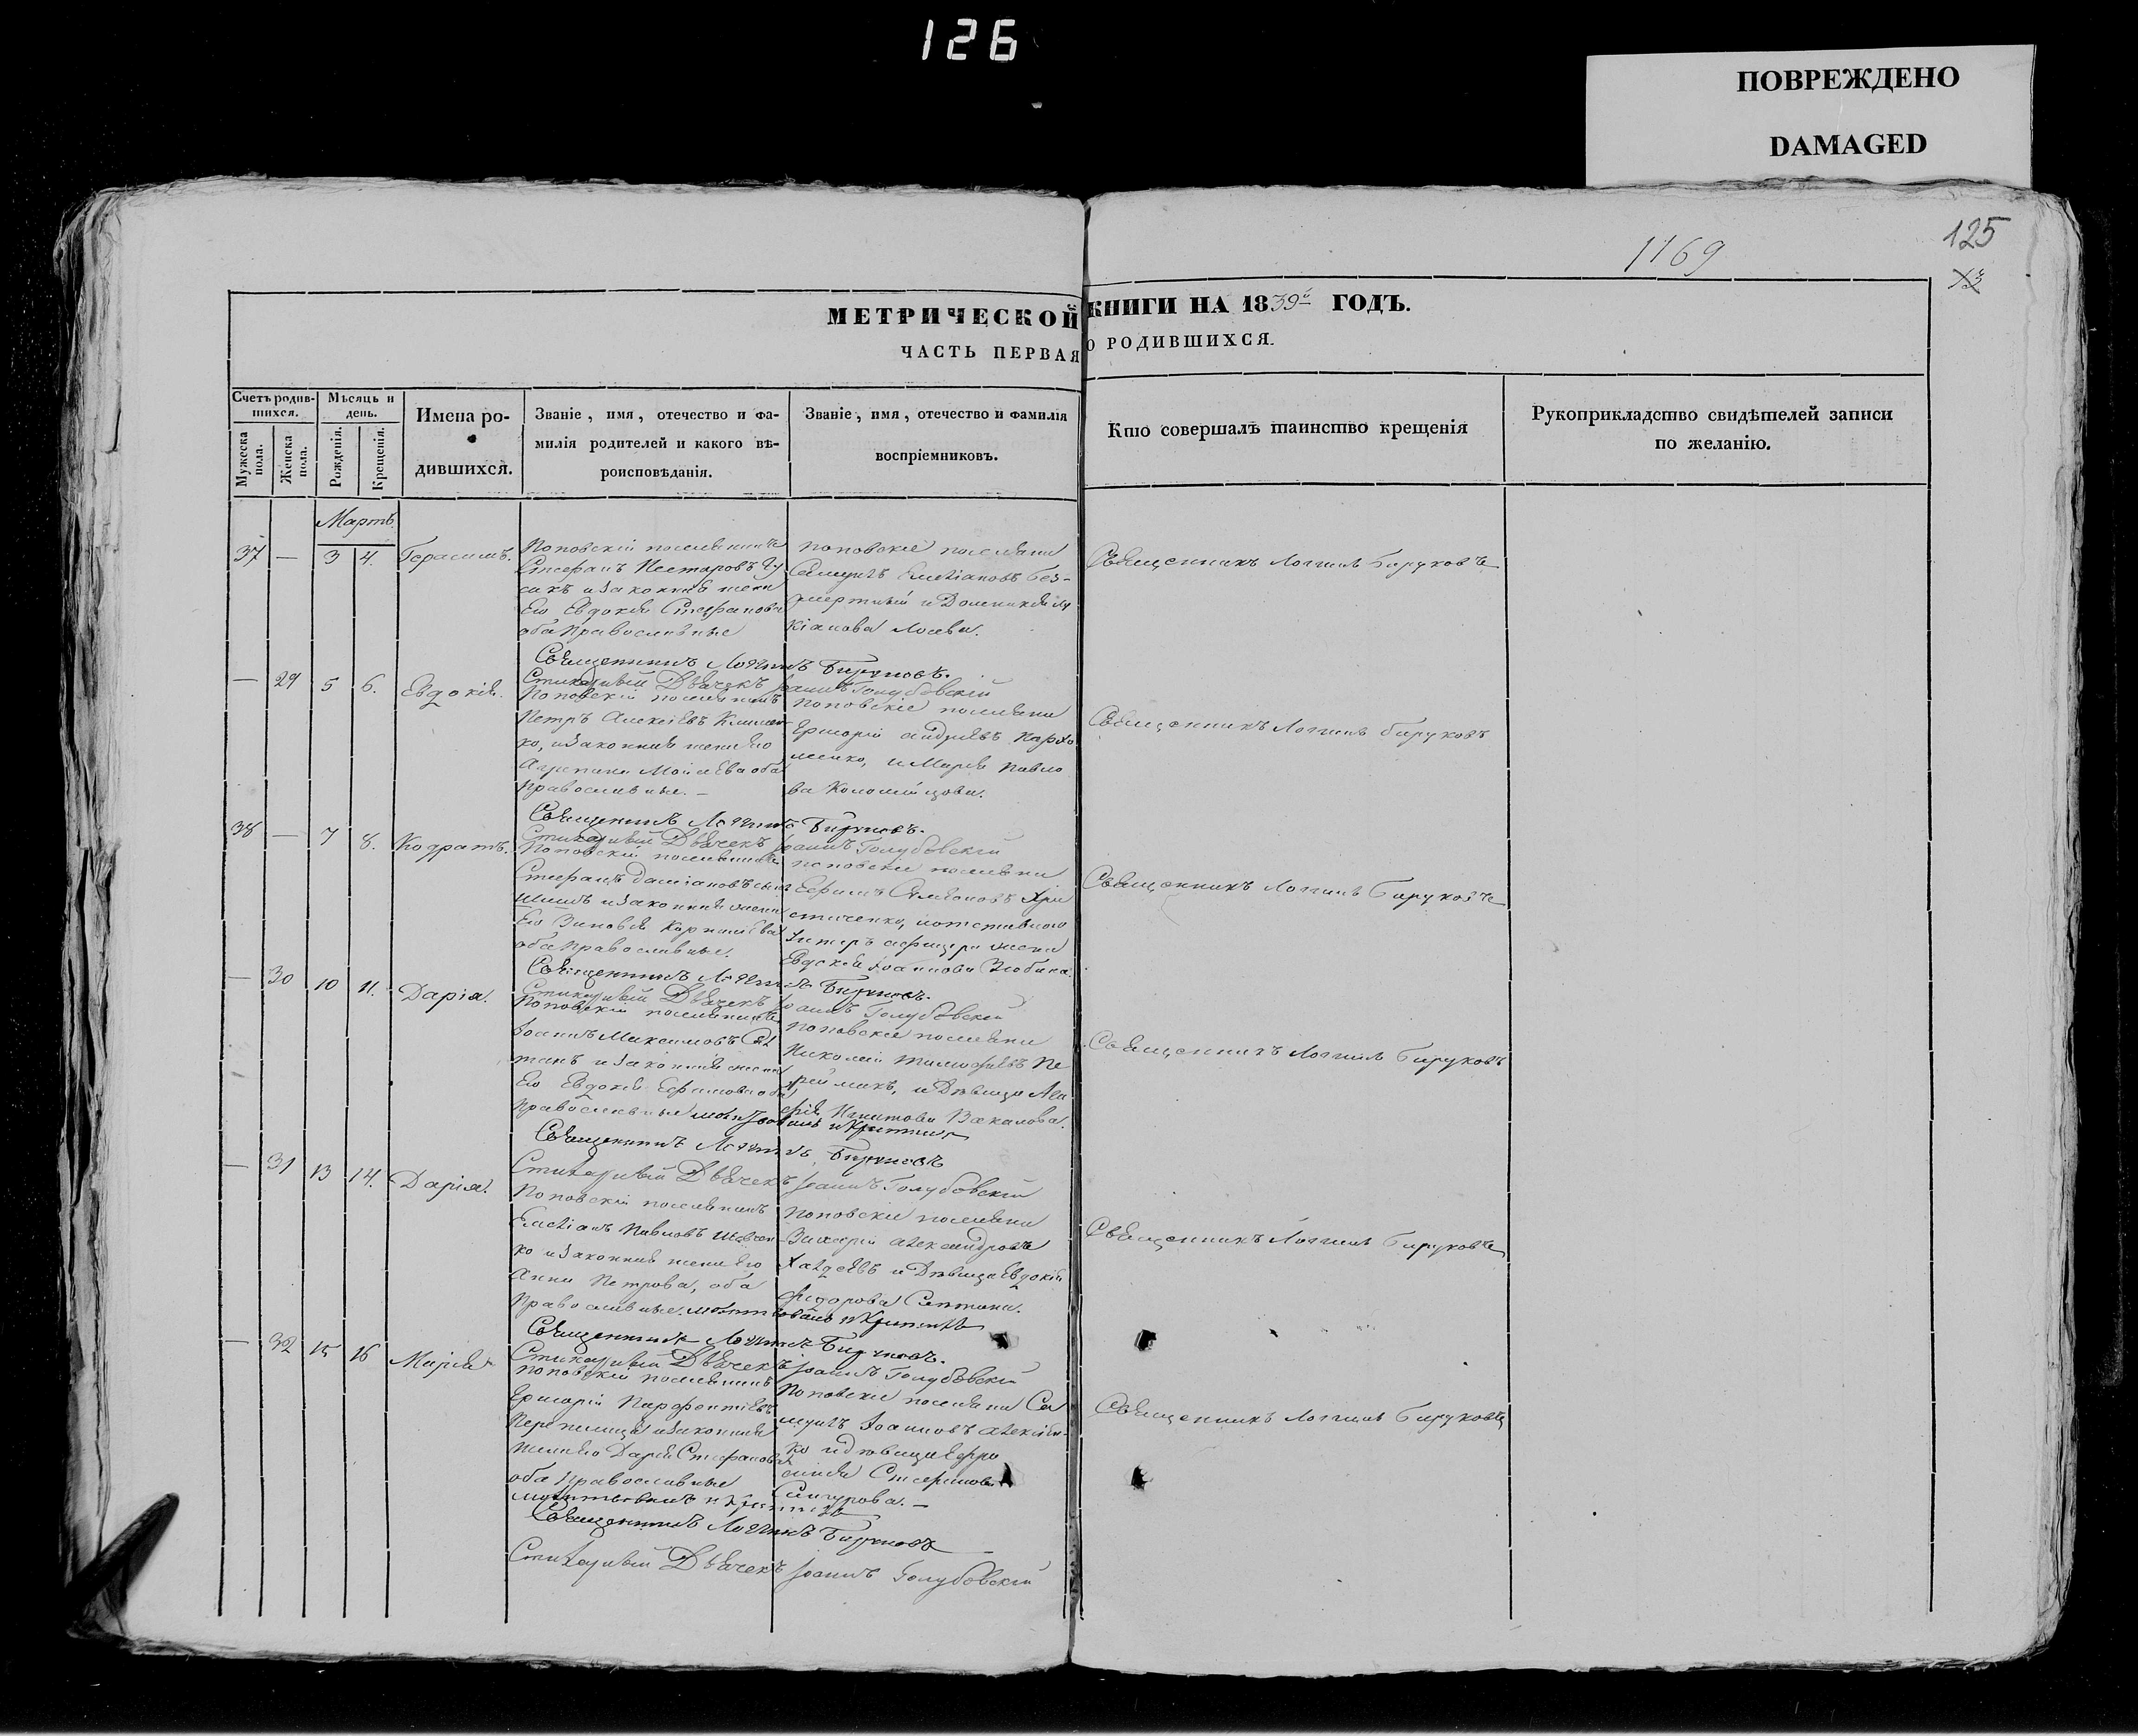 126
ПОВРЕЖДЕНО
DAMAGED
125
1169
МЕТРИЧЕСКОЙ КНИГИ НА 1839й ГОДЪ.
ЧАСТЬ ПЕРВАЯ О РОДИВШИХСЯ.
Счетъ родив-
шихся.
Мужеска пола.
Женска пола.
Мѣсяць и
день.
Рожденія.
Крещенія.
Имена ро-
дившихся.
Званіе, имя, отечество и фа-
милія родителей и какого вѣ-
роисповѣданія.
Званіе, имя, отечество и фамилія
воспріемниковъ.
Кто совершалъ таинство крещенія
Рукоприкладство свидѣтелей записи
по желанію.
Мартъ.
37 — 3 4. Герасимъ.
Поповскій поселянинъ
Стефанъ Нестеровъ Гу
сакъ и законная жена
его Евдокія Стефанова
оба православные
поповскіе поселяне
Самуилъ Емеліановъ Без-
смертный и Домникія Лу
кіанова Лосева.
Священникъ Логгинъ Бируковъ
Священникъ Логгинъ Бируковъ.
Стихарный Дьячекъ Іоаннъ Голубовскій
— 29 5 6. Евдокія.
Поповскій поселянинъ
Петръ Алексіевъ Климен
ко, и законная жена его
Агрипина Моисеева оба
православные. —
поповскіе поселяне
Григорій Андреевъ Пархо
менко, и Марія Павло
ва Коломійцова.
Священникъ Логгинъ Бируковъ
Священникъ Логгинъ Бируковъ.
Стихарный Дьячекъ Іоаннъ Голубовскій
38 — 7 8. Кодратъ.
Поповскій поселянинъ
Стефанъ Даміановъ
и законная жена
его Зиновія Корниліева
оба православные.
поповскіе поселяне
Ефимъ Симеоновъ Хри
стиченко, и отставнаго
Унтеръ афицера жена
Евдокія Іоаннова Злобина.
Священникъ Логгинъ Бируковъ
Священникъ Логгинъ Бируковъ.
Стихарный Дьячекъ Іоаннъ Голубовскій
— 30 10 11. Дарія.
Поповскій поселянинъ
Іоаннъ Максимовъ
и законная жена
его Евдокія Ефимова оба
православные
поповскіе поселяне
Николай Тимофѣевъ Пе
и Дѣвица Ага
фія Игнатова Вакалова.
молитвовалъ и Крестилъ
Священникъ Логгинъ Бируковъ
Священникъ Логгинъ Бируковъ
Стихарный Дьячекъ Іоаннъ Голубовскій
— 31 13 14. Дарія.
Поповскій поселянинъ
Емеліанъ Павловъ Шевчен
ко и законная жена его
Анна Петрова, оба
православные.
Поповскіе поселяне
Захарій Александровъ
и Дѣвица Евдокія
Федорова
молитвовалъ и Крестилъ
Священникъ Логгинъ Бируковъ
Священникъ Логгинъ Бируковъ.
Стихарный Дьячекъ Іоаннъ Голубовскій
— 32 15 16 Марія
поповскій поселянинъ
Григорій Парфентіевъ
Перепелица и законная
жена его Дарія Стефанова
оба православные
Поповскіе поселяне Са
муилъ Іоанновъ Алексіен-
ко и дѣвица Ефро
синія Стефанова
молитвовалъ и Крестилъ
Священникъ Логгинъ Бируковъ
Священникъ Логгинъ Бируковъ
Стихарный Дьячекъ Іоаннъ Голубовскій